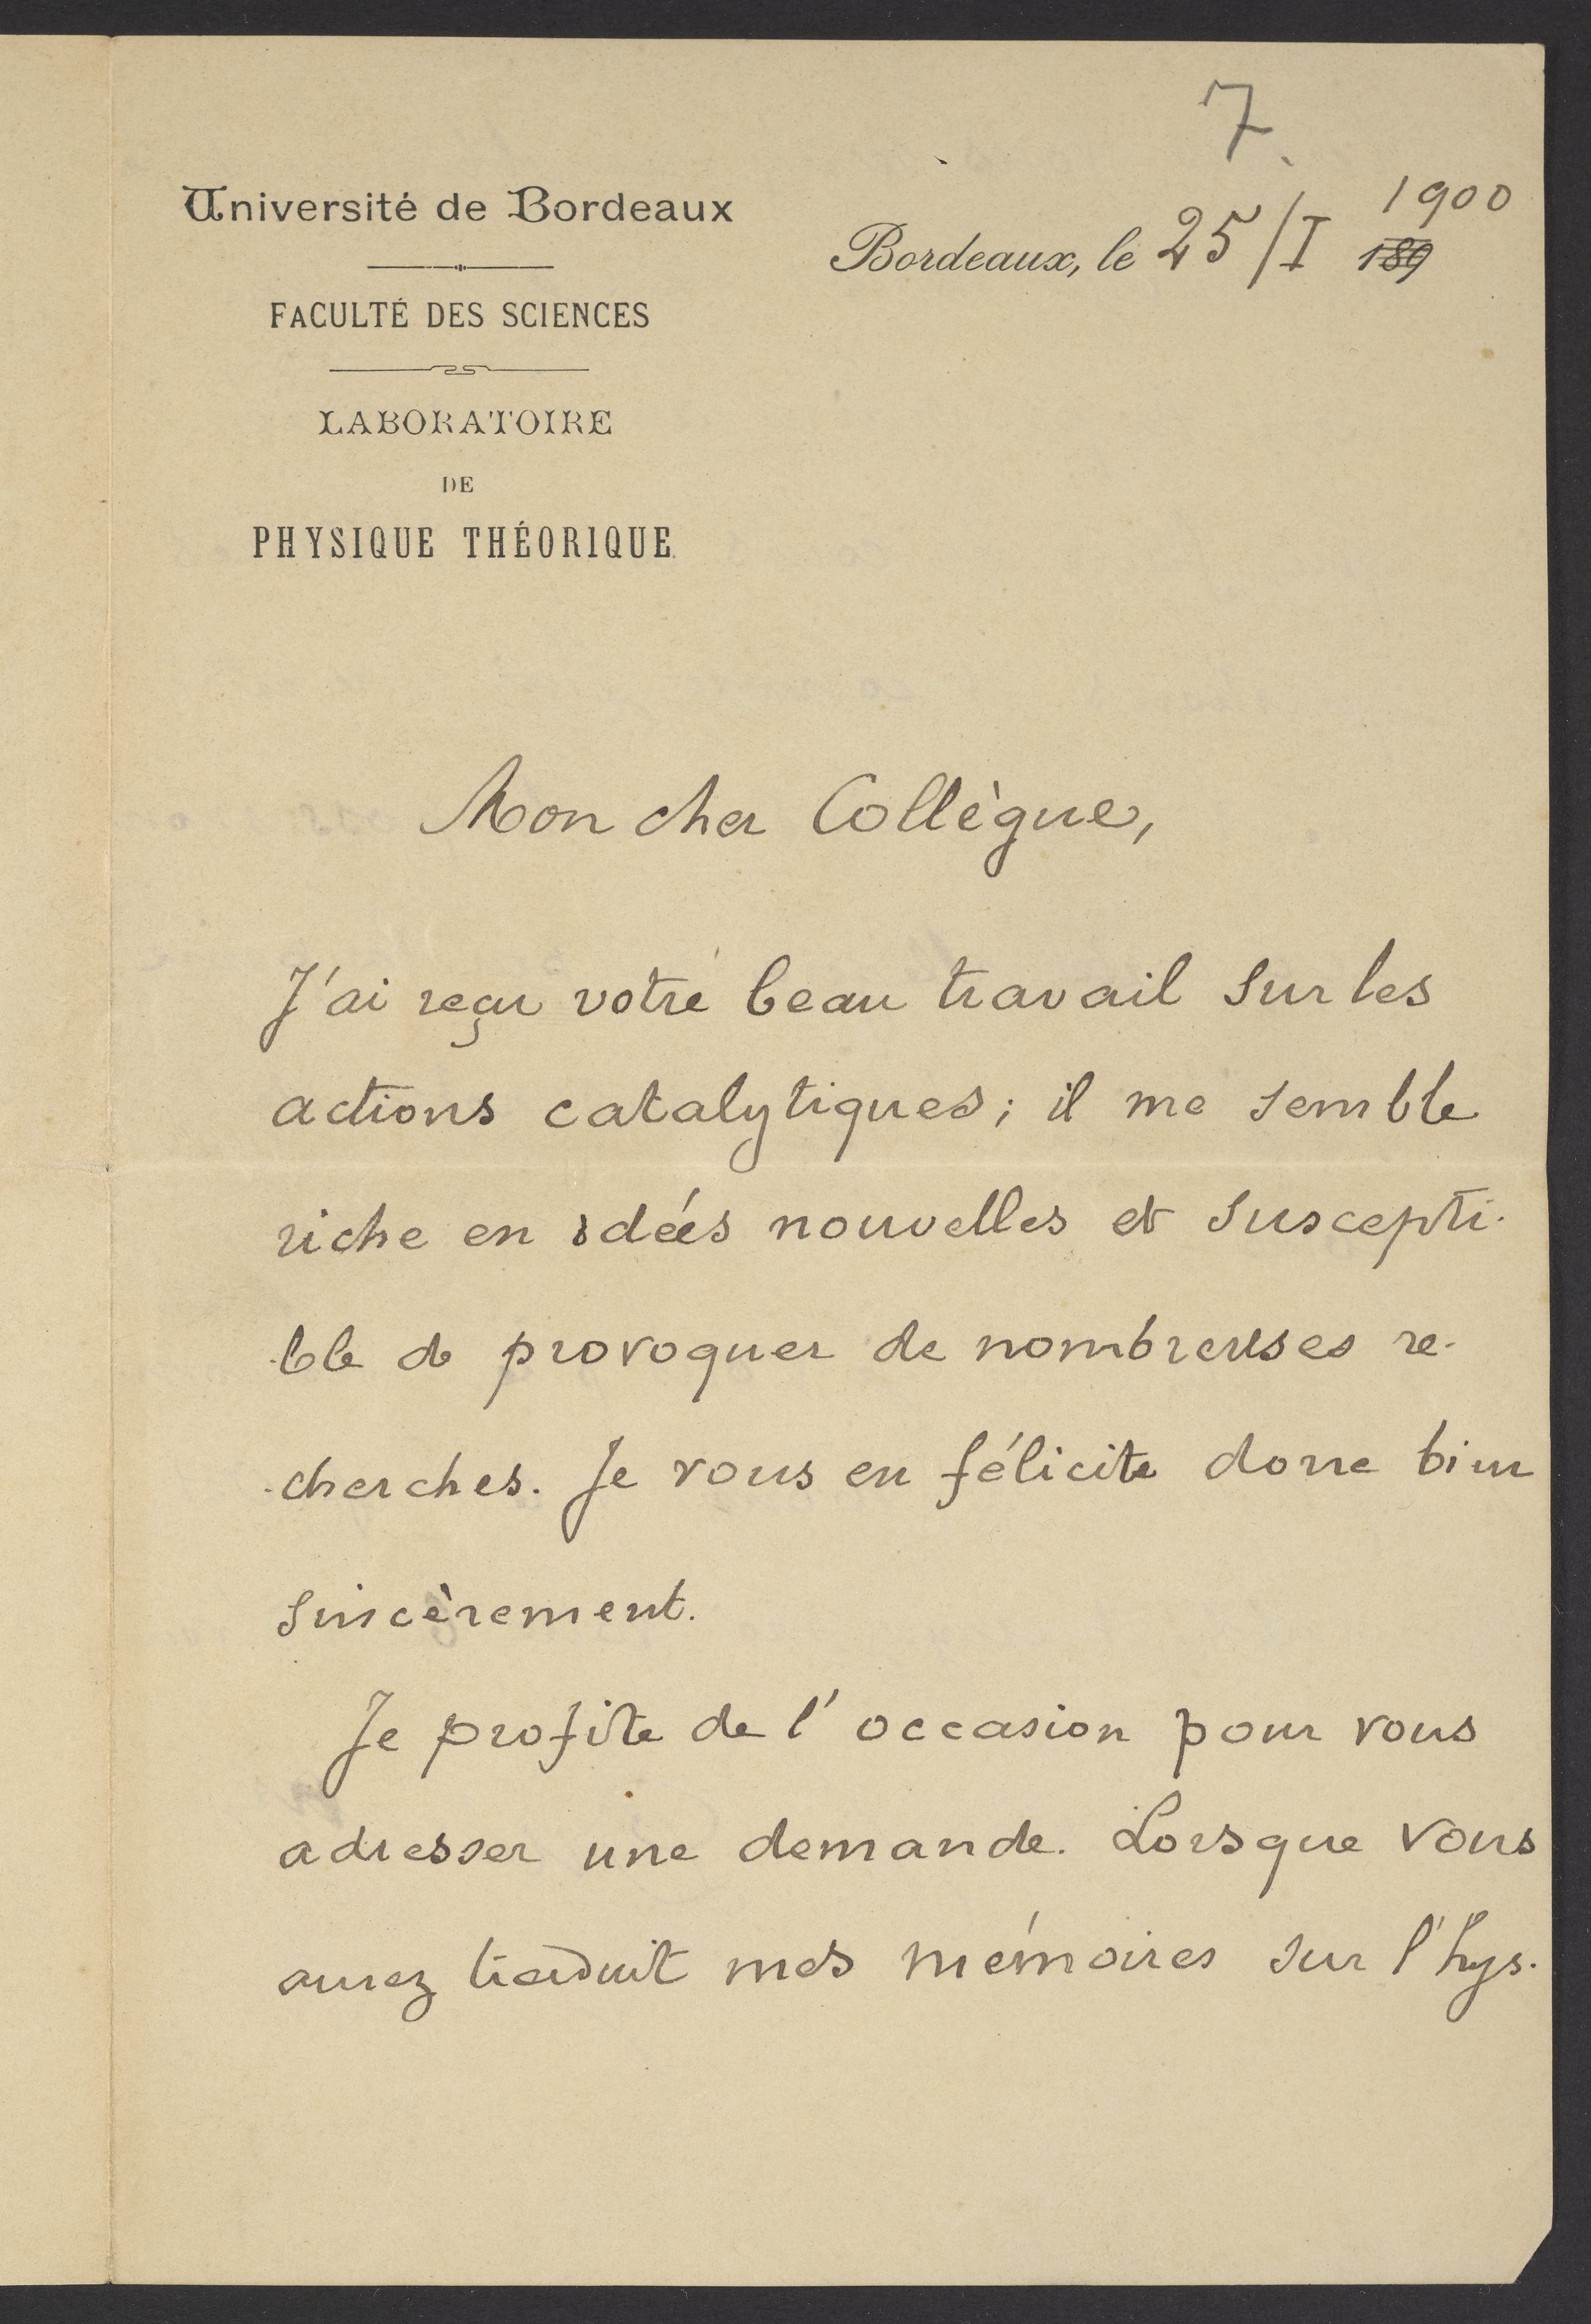 7.
Université de Bordeaux
FACULTÉ DES SCIENCES
LABORATOIRE
DE
PHYSIQUE THÉORIQUE.
Bordeaux, le 25/I 1900
189
Mon cher Collègue,
J'ai reçu votre beau travail sur les
actions catalytiques; il me semble
riche en idées nouvelles et suscepti-
-ble de provoquer de nombreuses re-
-cherches. Je vous en félicite donc bien
sincèrement.
Je profite de l'occasion pour vous
adresser une demande. Lorsque vous
aurez traduit mes mémoires sur l'hys-